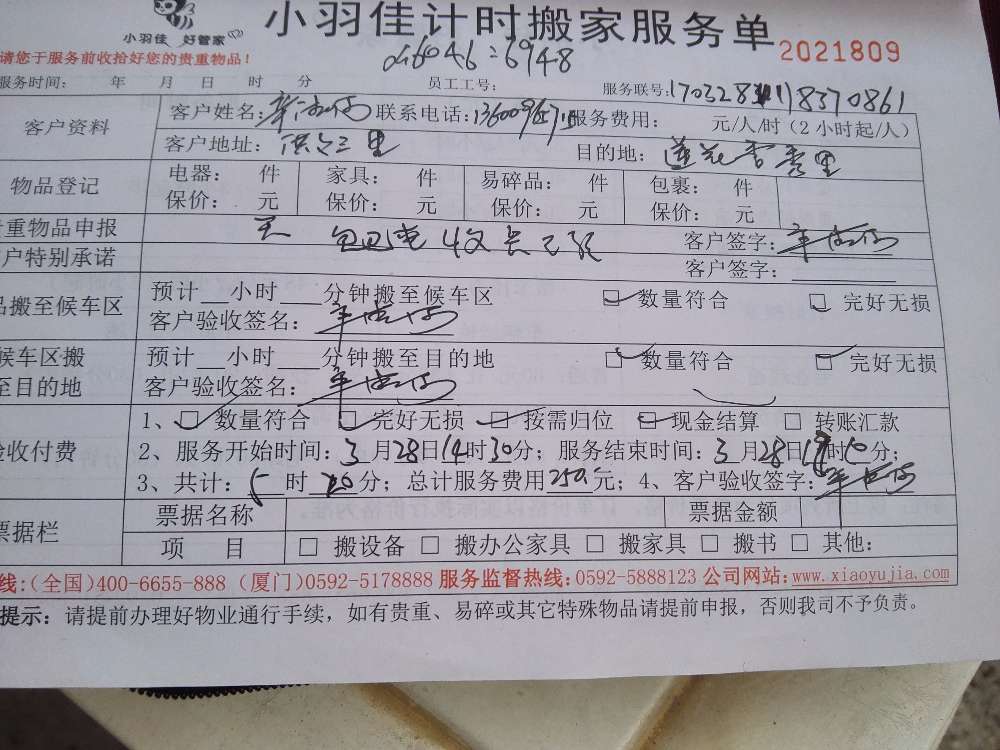 小羽佳 好管家
小羽佳计时搬家服务单
2021809
请您于服务前收拾好您的贵重物品!
6948
服务时间: 年 月 日 时 分 员工工号: 服务联号:
客户资料
客户姓名: 联系电话: 服务费用: 元/人/时(2小时起/人)
客户地址: 目的地: 莲花香秀里
物品登记
电器: 件 家具: 件 易碎品: 件 包裹: 件
保价: 元 保价: 元 保价: 元 保价: 元
贵重物品申报 无 客户签字:
户特别承诺 客户签字:
品搬至候车区
预计 小时 分钟搬至候车区 数量符合 完好无损
客户验收签名:
候车区搬
至目的地
预计 小时 分钟搬至目的地 数量符合 完好无损
客户验收签名:
验收付费
1、 数量符合 完好无损 按需归位 现金结算 □ 转账汇款
2、服务开始时间:3月28日14时30分;服务结束时间:3月28日 时 分;
3、共计:5时20分;总计服务费用250元;4、客户验收签字:
票据栏
票据名称 票据金额
项 目 □ 搬设备 □ 搬办公家具 □ 搬家具 □ 搬书 □ 其他:
线:(全国)400-6655-888 (厦门)0592-5178888 服务监督热线:0592-5888123 公司网站:www.xiaoyujia.com
提示:请提前办理好物业通行手续,如有贵重、易碎或其它特殊物品请提前申报,否则我司不予负责。